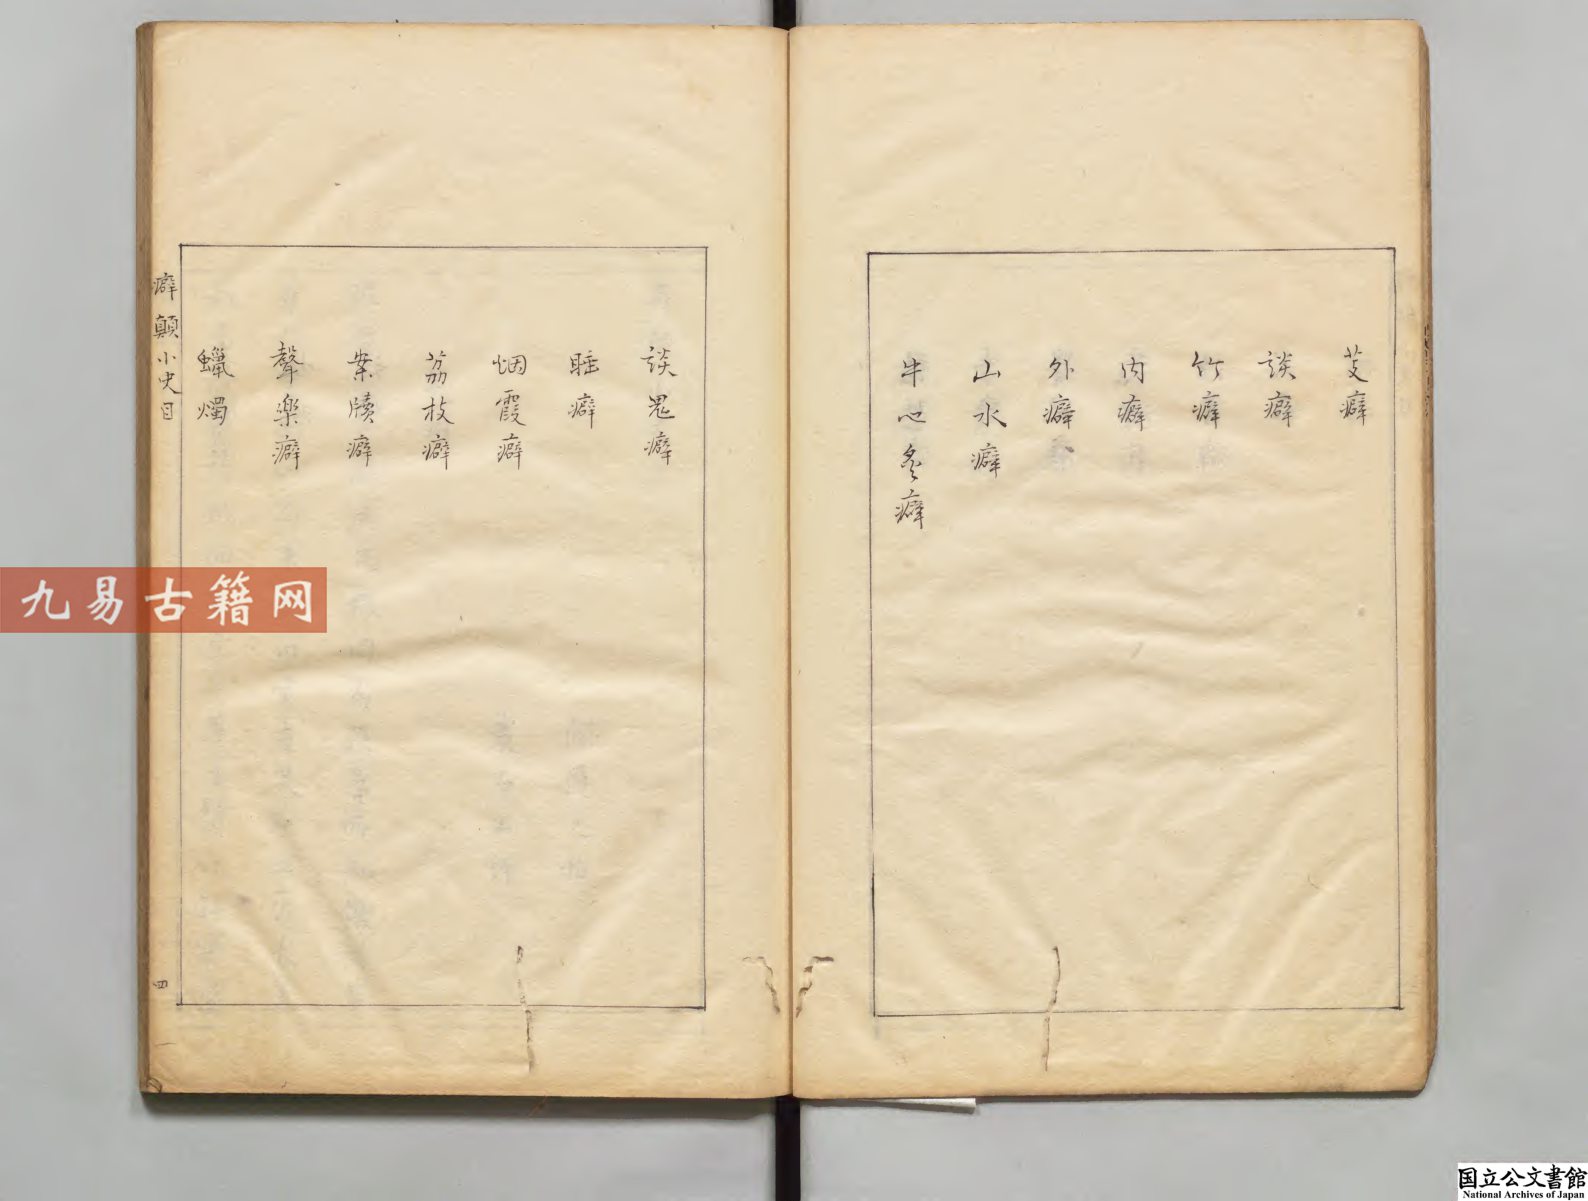 芰癖
談癖
竹癖
内癖
外癖
山水癖
牛心炙癖
談鬼癖
睡癖
烟霞癖
荔枝癖
案牘癖
聲樂癖
蠟燭
癖顛小史目
四
九易古籍网
国立公文書館
National Archives of Japan